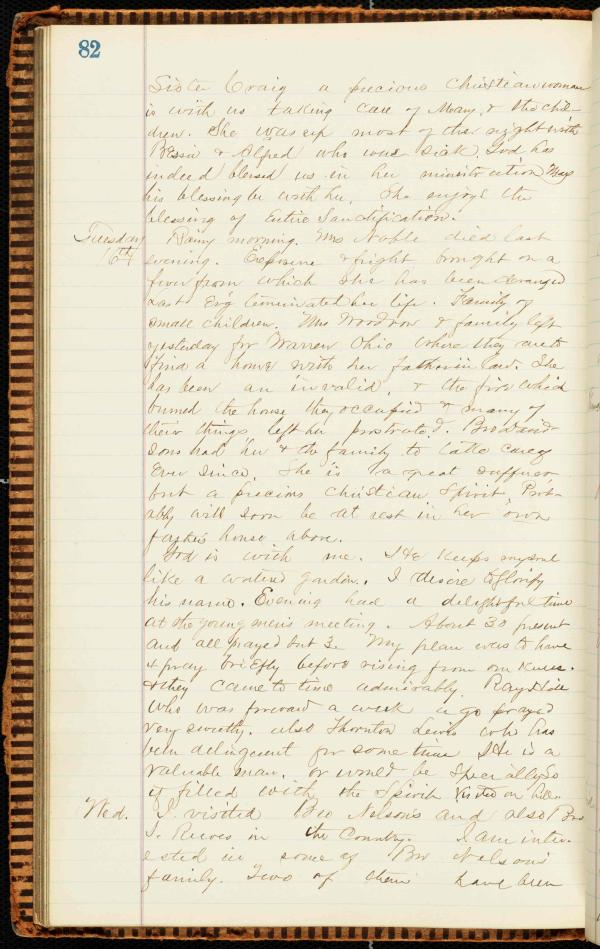 82
Sister Craig a precious Christian woman
is with us taking care of Mary & the chil-
dren. She was up most of the night with
Bessie & Alfred who was sick God has
indeed blessed us in her ministration May
his blessing be with her. She enjoys the
blessing of Entire Sanctification.
Tuesday 16th Rainy morning. Mrs Noble died last
evening. Exposure & fright brought on a
fever from which she has been deranged
Last Ev'g terminated her life. Family of
small children. Mrs Woodrow & family left
yesterday for Warren Ohio where they are to
find a home with her father in law. She
has been an invalid, & the fire which
burned the house they occupied & many of
their things left her prostrated. Bro and
sons had her & the family to take care of
Ever since. She is a great sufferer
but a precious Christian Spirit. Prob-
ably will soon be at rest in her own
father's house above.
God is with me. He keeps my soul
like a watered garden. I desire to glorify
his name. Evening had a delightful time
at the young men's meeting. About 30 present
and all prayed but 3. My plan was to have
& pray briefly before rising from our knees.
& they came to time admirably. Ray Hill
who was forward a week ago prayed
very sweetly. also Thornton Lewis who has
been delinquent for some time He is a
valuable man. or would be specially so
if filled with the Spirit Visited on hill.
Wed. I visited Bro Nelsons and also Bro
J. Reeves in the Country. I am inter-
ested in some of Bro Nelsons
family. Two of them have been